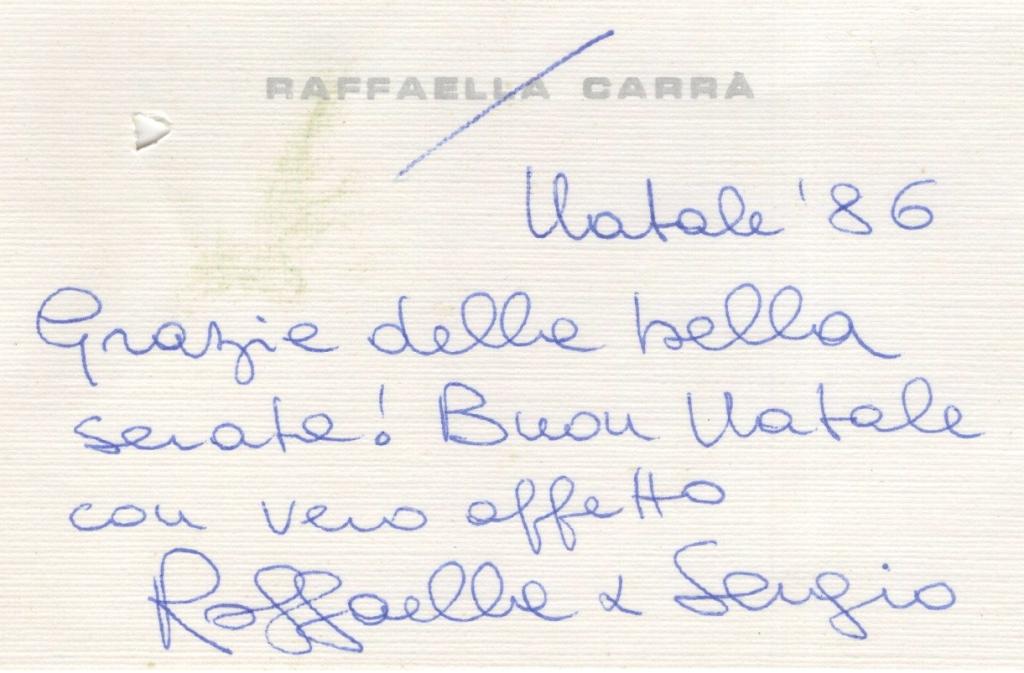 RAFFAELLA CARRÀ
Natale '86
Grazie della bella
serata! Buon Natale
con vero affetto
Raffaella & Sergio